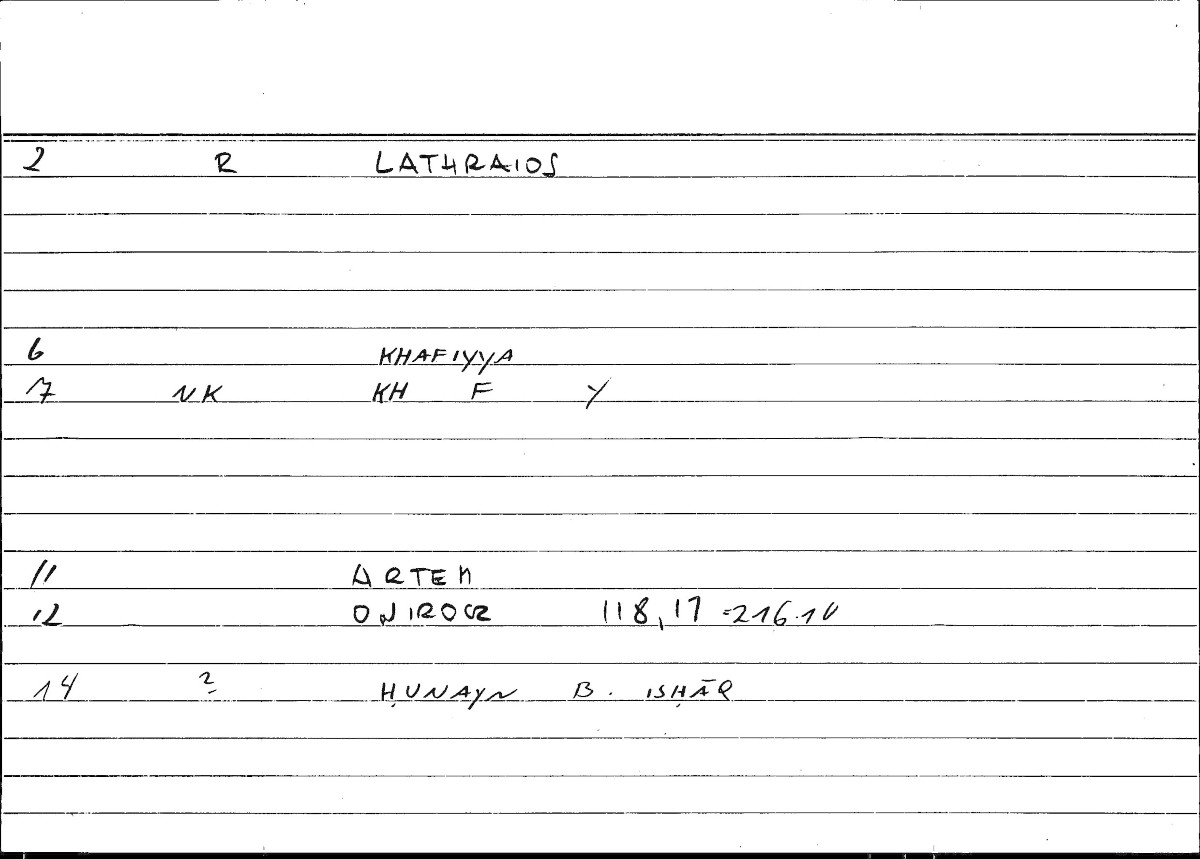 2 R LATHRAIOS
6 KHAFIYYA
7 NK KH F Y
11 ARTEM
12 ONIROCR 118,17 =216.10
14 2 ḤUNAYN B. ISḤĀQ